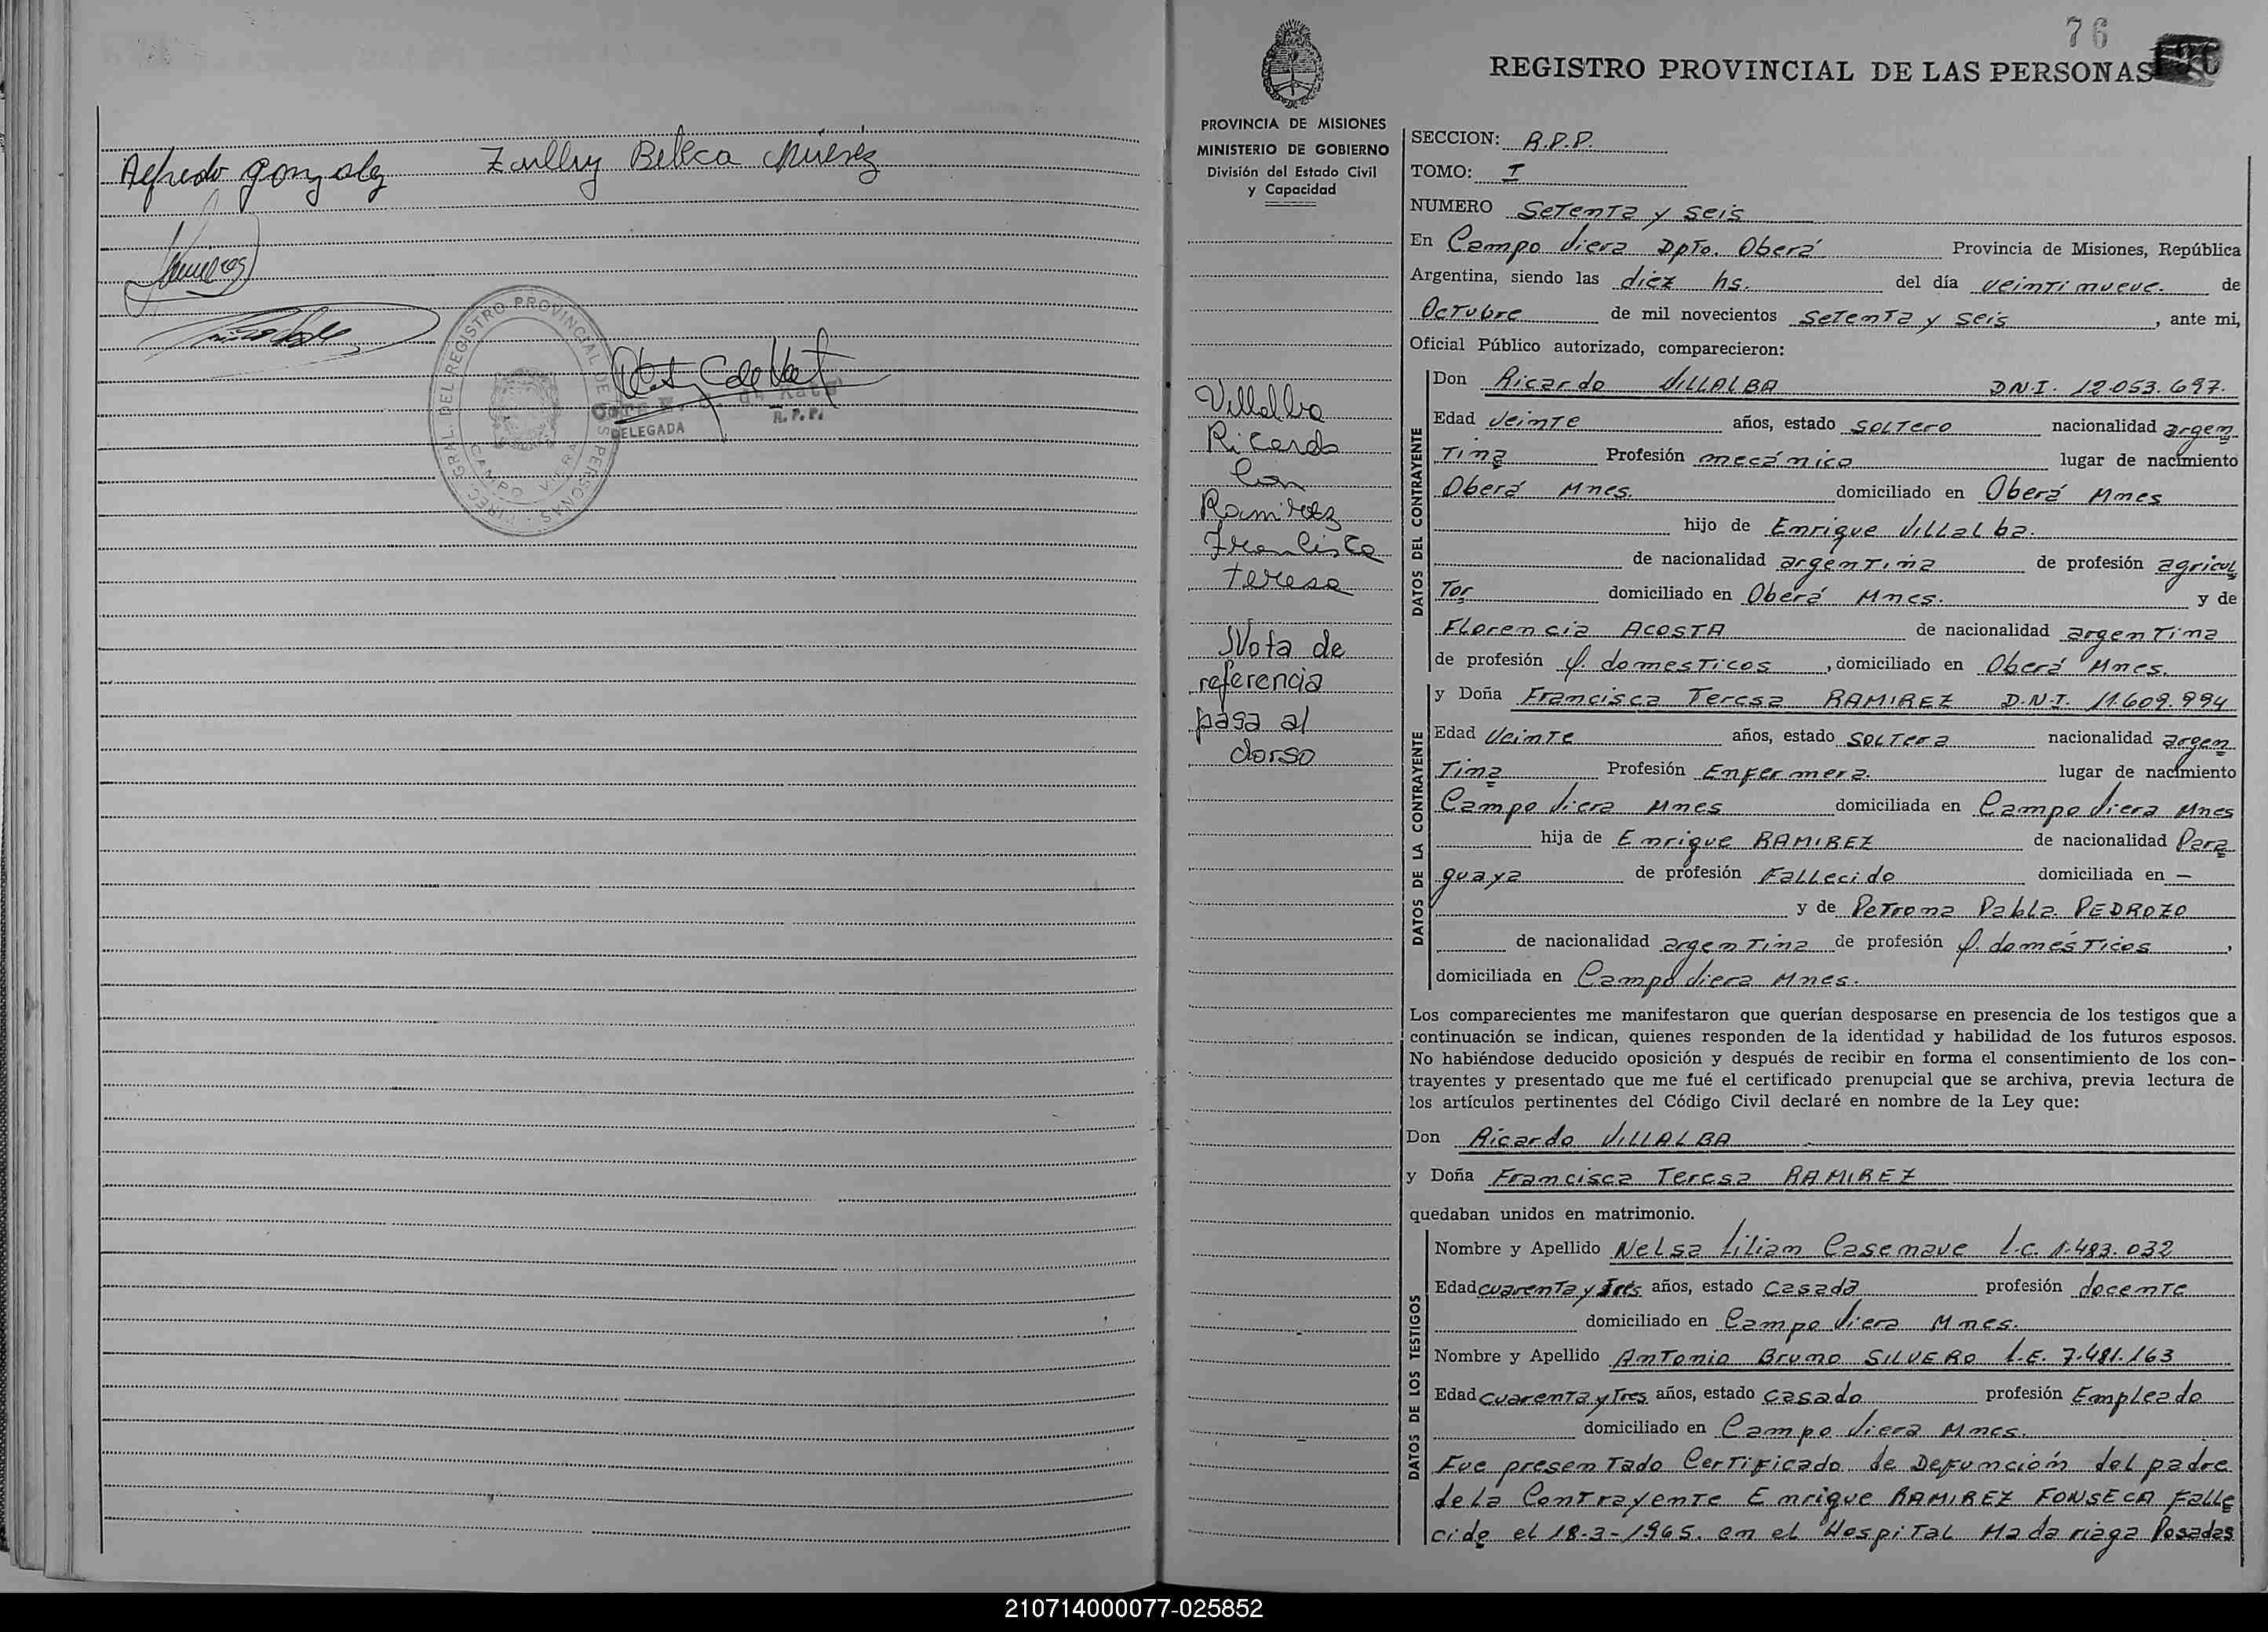 Alfredo Gonzalez
DIREC. GRAL. DEL REGISTRO PROVINCIAL DE LAS PERSONAS
CAMPO VIERA
DELEGADA
R.P.P.
76
REGISTRO PROVINCIAL DE LAS PERSONAS
PROVINCIA DE MISIONES
MINISTERIO DE GOBIERNO
División del Estado Civil
y Capacidad
Villalba
Ricardo
Con
Ramirez
Francisca
teresa
Nota de
referencia
pasa al
dorso
SECCION: R.P.P.
TOMO: I
NUMERO Setenta y seis
En Campo Viera Dpto. Oberá Provincia de Misiones, República
Argentina, siendo las diez hs. del día veintinueve. de
Octubre de mil novecientos setenta y seis, ante mi,
Oficial Público autorizado, comparecieron:
DATOS DEL CONTRAYENTE
Don Ricardo VILLALBA D.N.I. 12.053.697.
Edad Veinte años, estado soltero nacionalidad argen
tina Profesión mecánico lugar de nacimiento
Oberá Mnes. domiciliado en Oberá Mnes
hijo de Enrique Villalba.
de nacionalidad argentina de profesión agricul
tor domiciliado en Oberá Mnes. y de
Florencia ACOSTA de nacionalidad argentina
de profesión q. domesticos, domiciliado en Oberá Mnes.
DATOS DE LA CONTRAYENTE
y Doña Francisca Teresa RAMIREZ D.N.I. 11.609.994
Edad Veinte años, estado soltera nacionalidad argen
tina Profesión Enfermera. lugar de nacimiento
Campo Viera Mnes domiciliada en Campo Viera Mnes
hija de Enrique RAMIREZ de nacionalidad Para
guaya de profesión Fallecido domiciliada en —
y de Petrona Pabla PEDROZO
de nacionalidad argentina de profesión q. domésticos,
domiciliada en Campo Viera Mnes.
Los comparecientes me manifestaron que querían desposarse en presencia de los testigos que a
continuación se indican, quienes responden de la identidad y habilidad de los futuros esposos.
No habiéndose deducido oposición y después de recibir en forma el consentimiento de los con-
trayentes y presentado que me fué el certificado prenupcial que se archiva, previa lectura de
los artículos pertinentes del Código Civil declaré en nombre de la Ley que:
Don Ricardo VILLALBA
y Doña Francisca Teresa RAMIREZ
quedaban unidos en matrimonio.
DATOS DE LOS TESTIGOS
Nombre y Apellido Nelsa Lilian Casenave L.C. 1.483.032
Edad cuarenta y tres años, estado casada profesión docente
domiciliado en Campo Viera Mnes.
Nombre y Apellido Antonio Bruno SILVERO L.E. 7.481.163
Edad cuarenta y tres años, estado casado profesión Empleado
domiciliado en Campo Viera Mnes.
Fue presentado Certificado de Defunción del padre
de la Contrayente Enrique RAMIREZ FONSECA Falle
cido el 18-3-1965. en el Hospital Madariaga Posadas
210714000077-025852